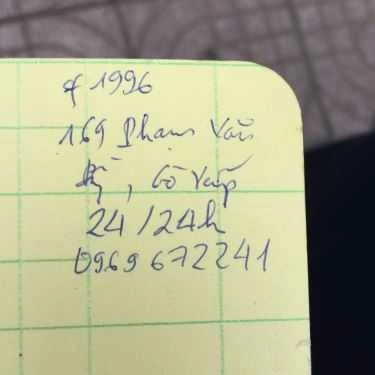 1996
169 Phạm Văn
, Gò Vấp
24/24h
0969672241